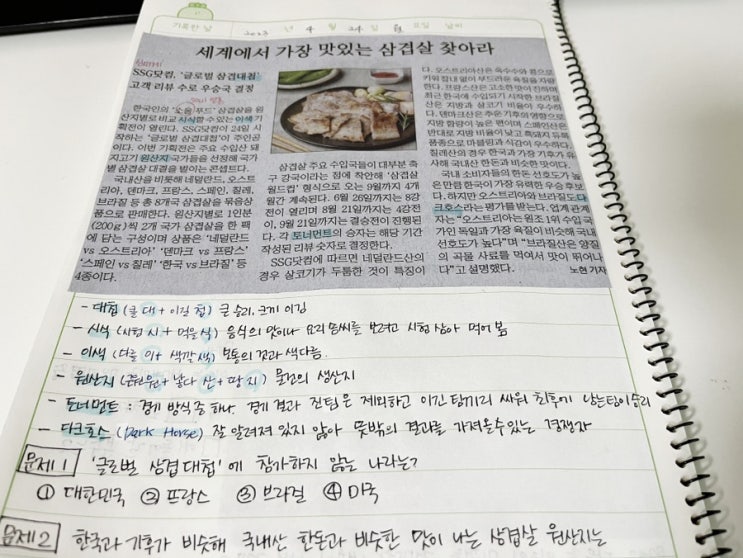 기록한 날 2023 년 4 월 24 일 월 요일 날씨
세계에서 가장 맛있는 삼겹살 찾아라
SSG닷컴, ‘글로벌 삼겹대첩’
고객 리뷰 수로 우승국 결정
한국인의 ‘소울푸드’ 삼겹살을 원
산지별로 비교 시식할 수 있는 이색 기
획전이 열린다. SSG닷컴이 24일 시
작하는 ‘글로벌 삼겹대첩’이 주인공이
다. 이번 기획전은 주요 수입산 돼
지고기 원산지 국가들을 선정해 국가
별 삼겹살 대결을 벌이는 콘셉트다.
국내산을 비롯해 네덜란드, 오스트
리아, 덴마크, 프랑스, 스페인, 칠레,
브라질 등 총 8개국 삼겹살을 묶음상
품으로 판매한다. 원산지별로 1인분
(200g)씩 2개 국가 삼겹살을 한 팩
에 담는 구성이며 상품은 ‘네덜란드
vs 오스트리아’ ‘덴마크 vs 프랑스’
‘스페인 vs 칠레’ ‘한국 vs 브라질’ 등
4종이다.
삼겹살 주요 수입국들이 대부분 축
구 강국이라는 점에 착안해 ‘삼겹살
월드컵’ 형식으로 오는 9월까지 4개
월간 계속된다. 6월 26일에는 8강전
이 열리며 8월 21일까지는 4강전
이, 9월 21일까지는 결승전이 진행된
다. 각 토너먼트의 승자는 해당 기간
작성된 리뷰 숫자로 결정한다.
SSG닷컴에 따르면 네덜란드산의
경우 살코기가 두툼한 것이 특징이
다. 오스트리아산은 옥수수와 콩으로
키워 잡내 없이 부드러운 육질을 자랑
한다. 프랑스산은 고소한 맛이 진하며
최근 한국에 수입되기 시작한 브라질
산은 지방과 살코기 비율이 우수하
다. 덴마크산은 추운 기후의 영향으로
지방 함량이 높은 편이며 스페인산은
반대로 지방 비율이 낮고 흑돼지 등
품종으로 마블링과 식감이 우수하다.
칠레산의 경우 한국과 가장 기후가 유
사해 국내산 한돈과 비슷한 맛이다.
국내 소비자들의 한돈 선호도가 높
은 만큼 한국이 가장 유력한 우승 후보
다. 하지만 오스트리아와 브라질도 다
크호스라는 평가를 받는다. 업계 관계
자는 “오스트리아는 원조 1위 수입국
가인 독일과 가장 육질이 비슷해 국내
선호도가 높다”며 “브라질산은 양질
의 곡물 사료를 먹여서 맛이 뛰어나
다”고 설명했다. 노현 기자
- 대첩 (클 대 + 이길 첩) 큰 승리. 크게 이김
- 시식 (시험 시 + 먹을 식) 음식의 맛이나 요리 솜씨를 보려고 시험 삼아 먹어 봄
- 이색 (다를 이 + 색깔 색) 보통의 것과 색다름
- 원산지 (근원 원 + 낳다 산 + 땅 지) 물건의 생산지
- 토너먼트 : 경기 방식 중 하나. 경기 결과 진팀은 제외하고 이긴 팀끼리 싸워 최후에 남는팀이 승리
- 다크호스 (Dark Horse) 잘 알려져 있지 않아 뜻밖의 결과를 가져올수있는 경쟁자
문제1 '글로벌 삼겹대첩' 에 참가하지 않는 나라는?
① 대한민국 ② 프랑스 ③ 브라질 ④ 미국
문제2 한국과 기후가 비슷해 국내산 한돈과 비슷한 맛이 나는 삼겹살 원산지는